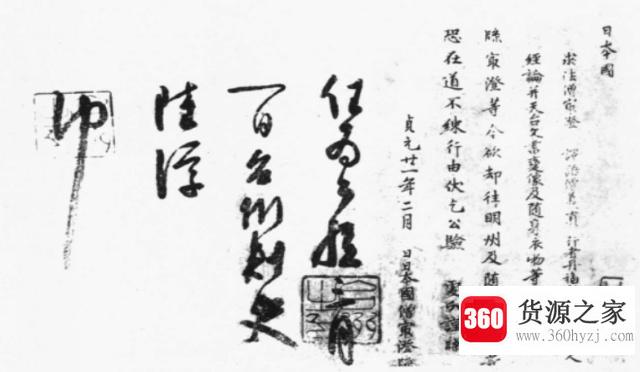 日本國
求法僧最澄
經論并天台文書變像及随身衣物等
牒最澄等今欲却往明州及随
恐在道不練行由伏乞公驗
貞元廿一年二月 日日本國僧最澄牒
任為公驗三月
一日台州刺史
陸淳
印
360 货源之家
www.360hyzj.com